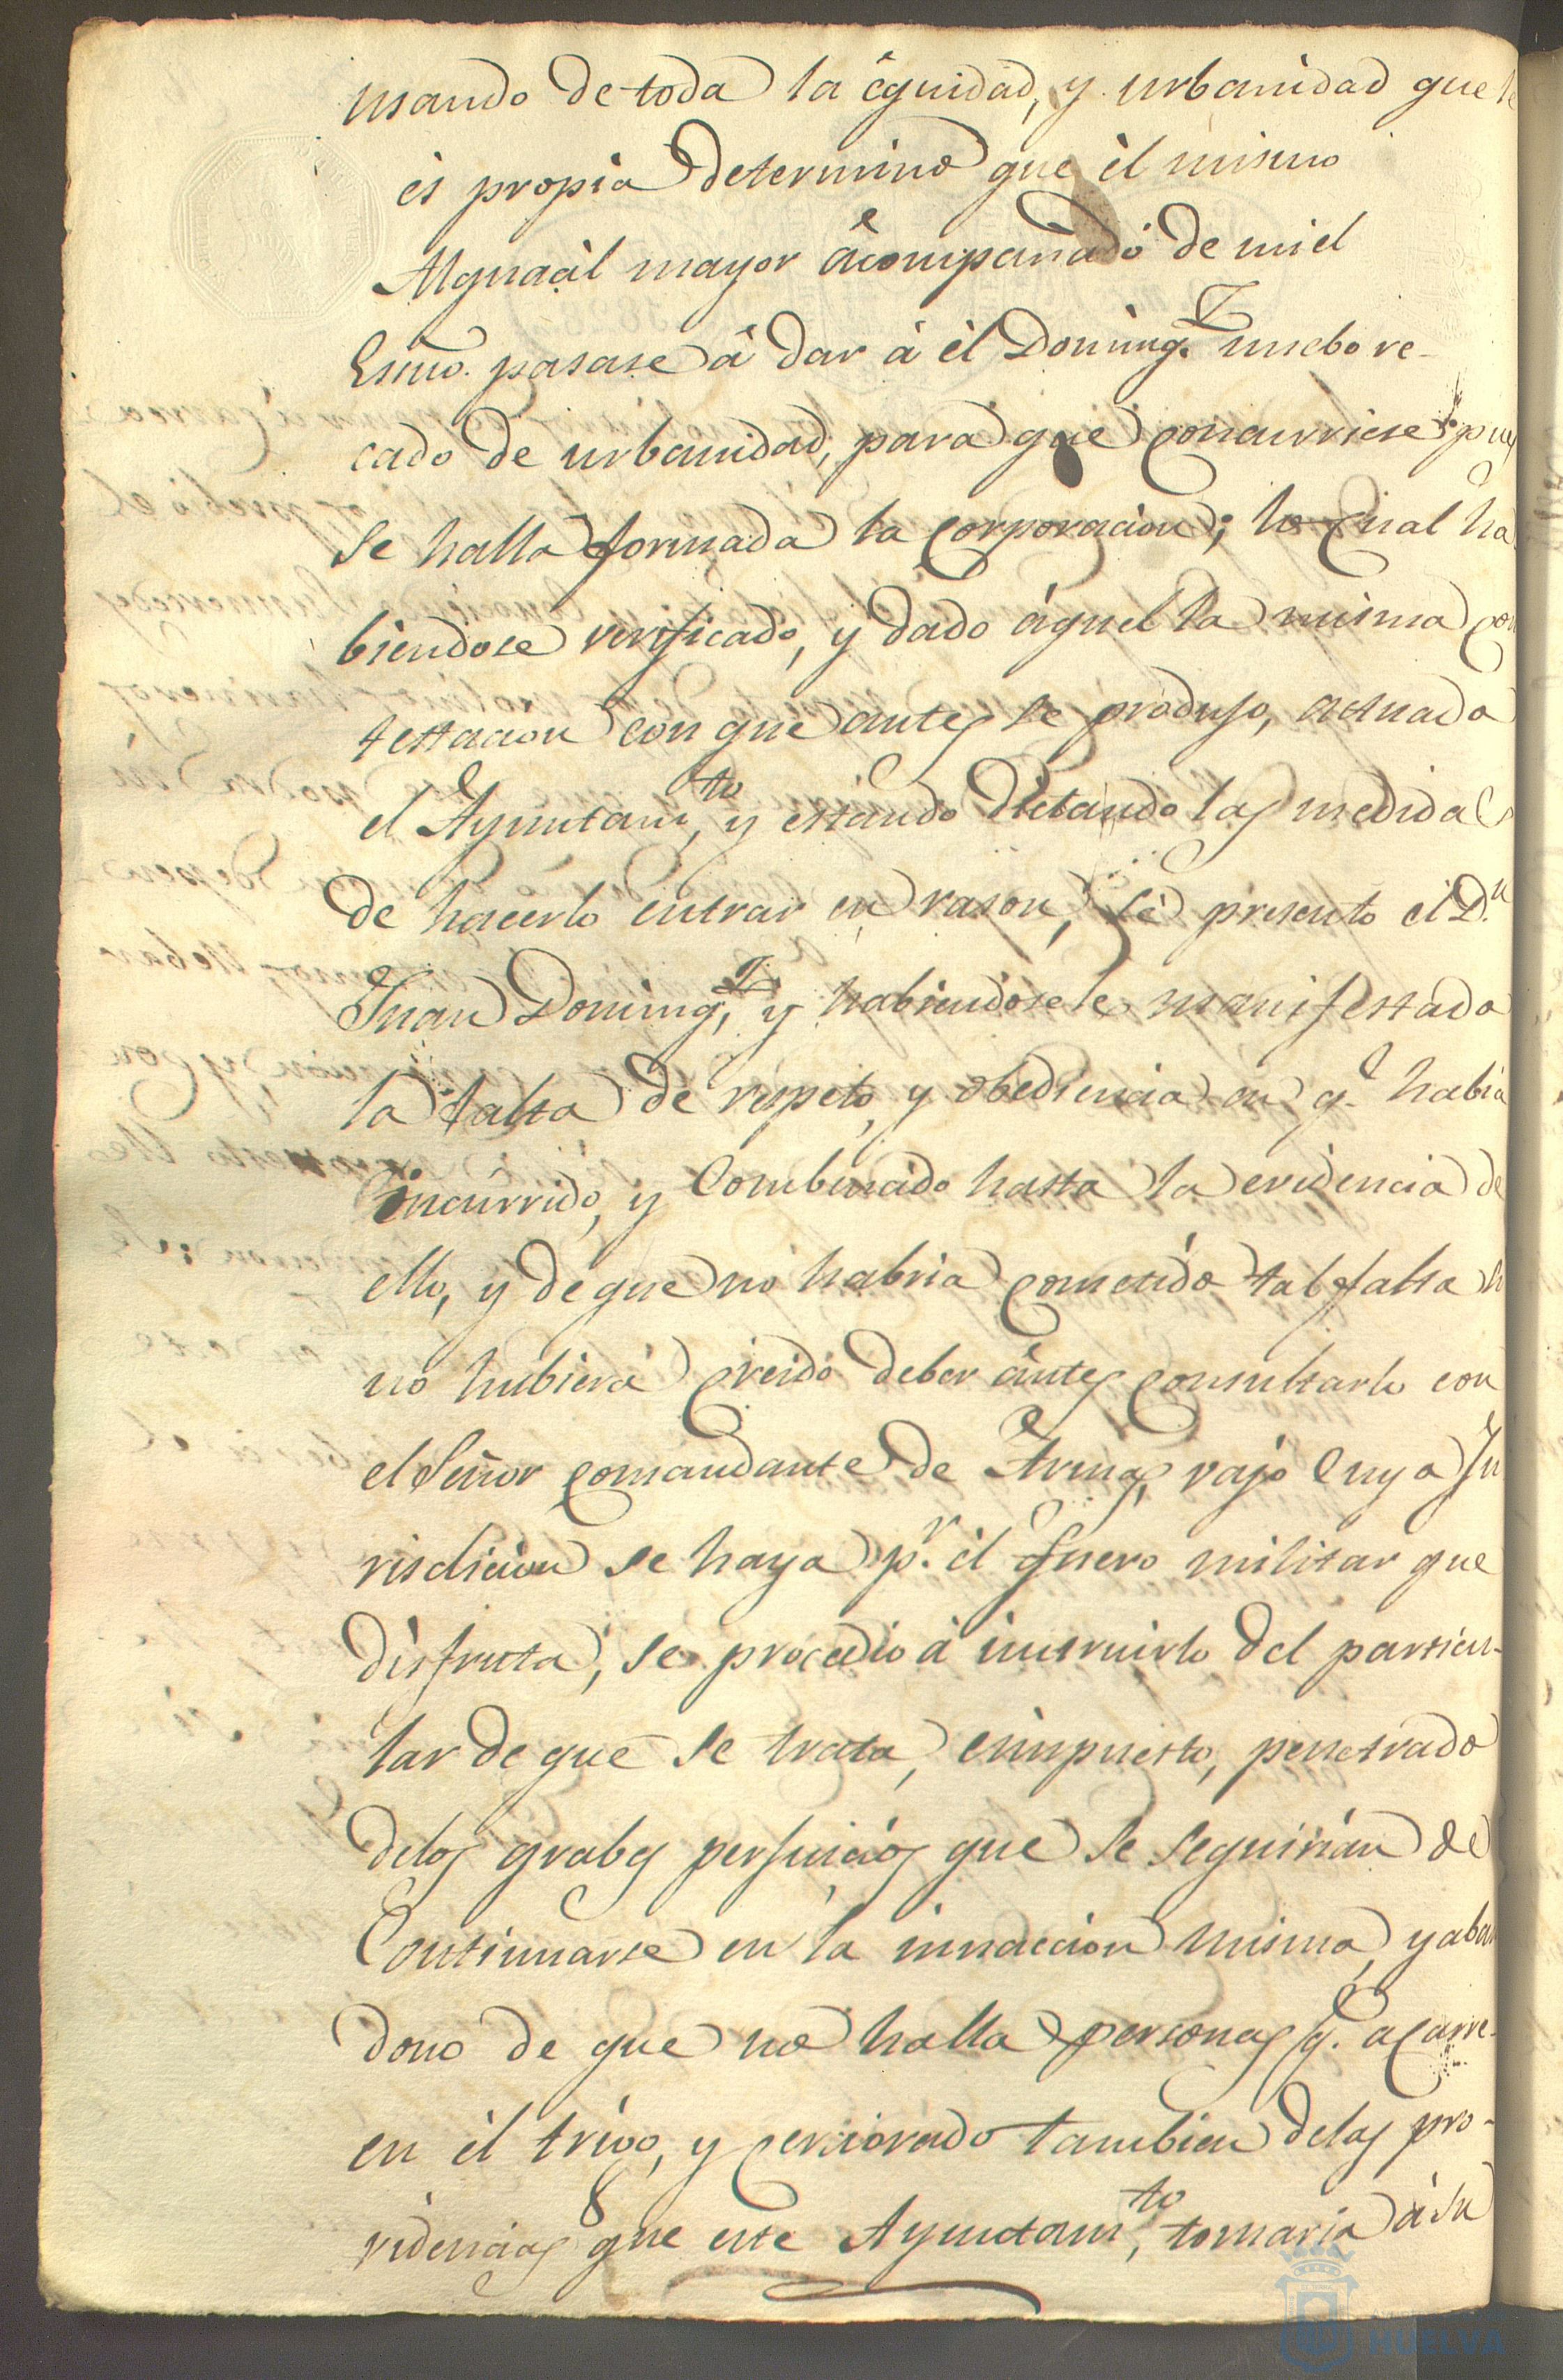 usando de toda la equidad, y urbanidad que le
es propia determinò que èl mismo
Alguacil mayor acompañado de mi el
Esno. pasase à dar à èl Doming.z nuebo re-
cado de urbanidad, para que concurriese, pues
se halla formada la corporacion; lo cual ha
biendose verificado, y dado áquel la misma con
testacion con que antes se produjo, actuado
el Ayuntam.to, y estando dictando las medidas
de hacerlo entrar en rason, se presento el D.n
Juan Doming.z, y habiendosele manifestado
la falta de respeto, y obediencia en q.e habia
incurrido, y combencido hasta la evidencia de
ello, y de que no habria cometido tal falta si
no hubiera creido deber ántes consultarlo con
el Señor comandante de Armas, vajo cuya Ju
risdicion se haya p.r èl fuero militar que
disfruta, se procedio à instruirlo del particu-
lar de que se trata, e impuesto, penetrado
delos grabes perjuicios que se seguirian de
Continuarse en la innaccion misma, y aban
dono de que no halla personas q.e acarre-
en èl trigo, y cerciorado tambien delas pro-
videncias que este Ayuntam.to, tomaria à su
HUELVA